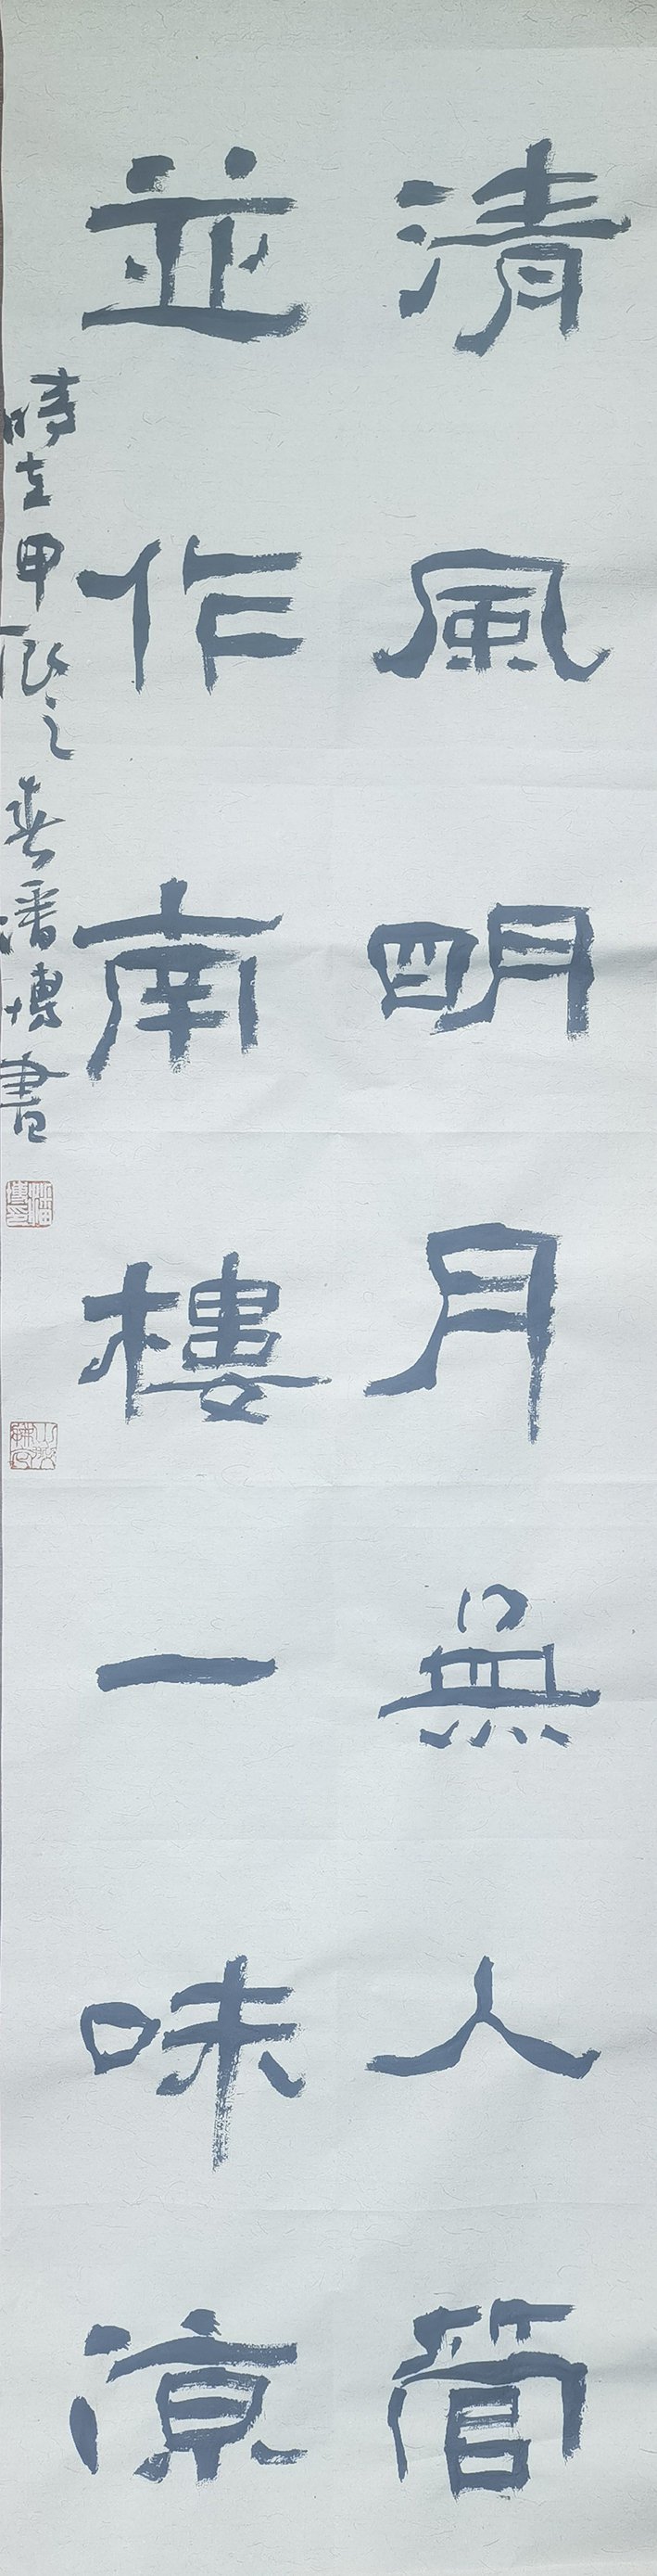 清風明月無人管
並作南樓一味涼
時在甲辰之春潘博書